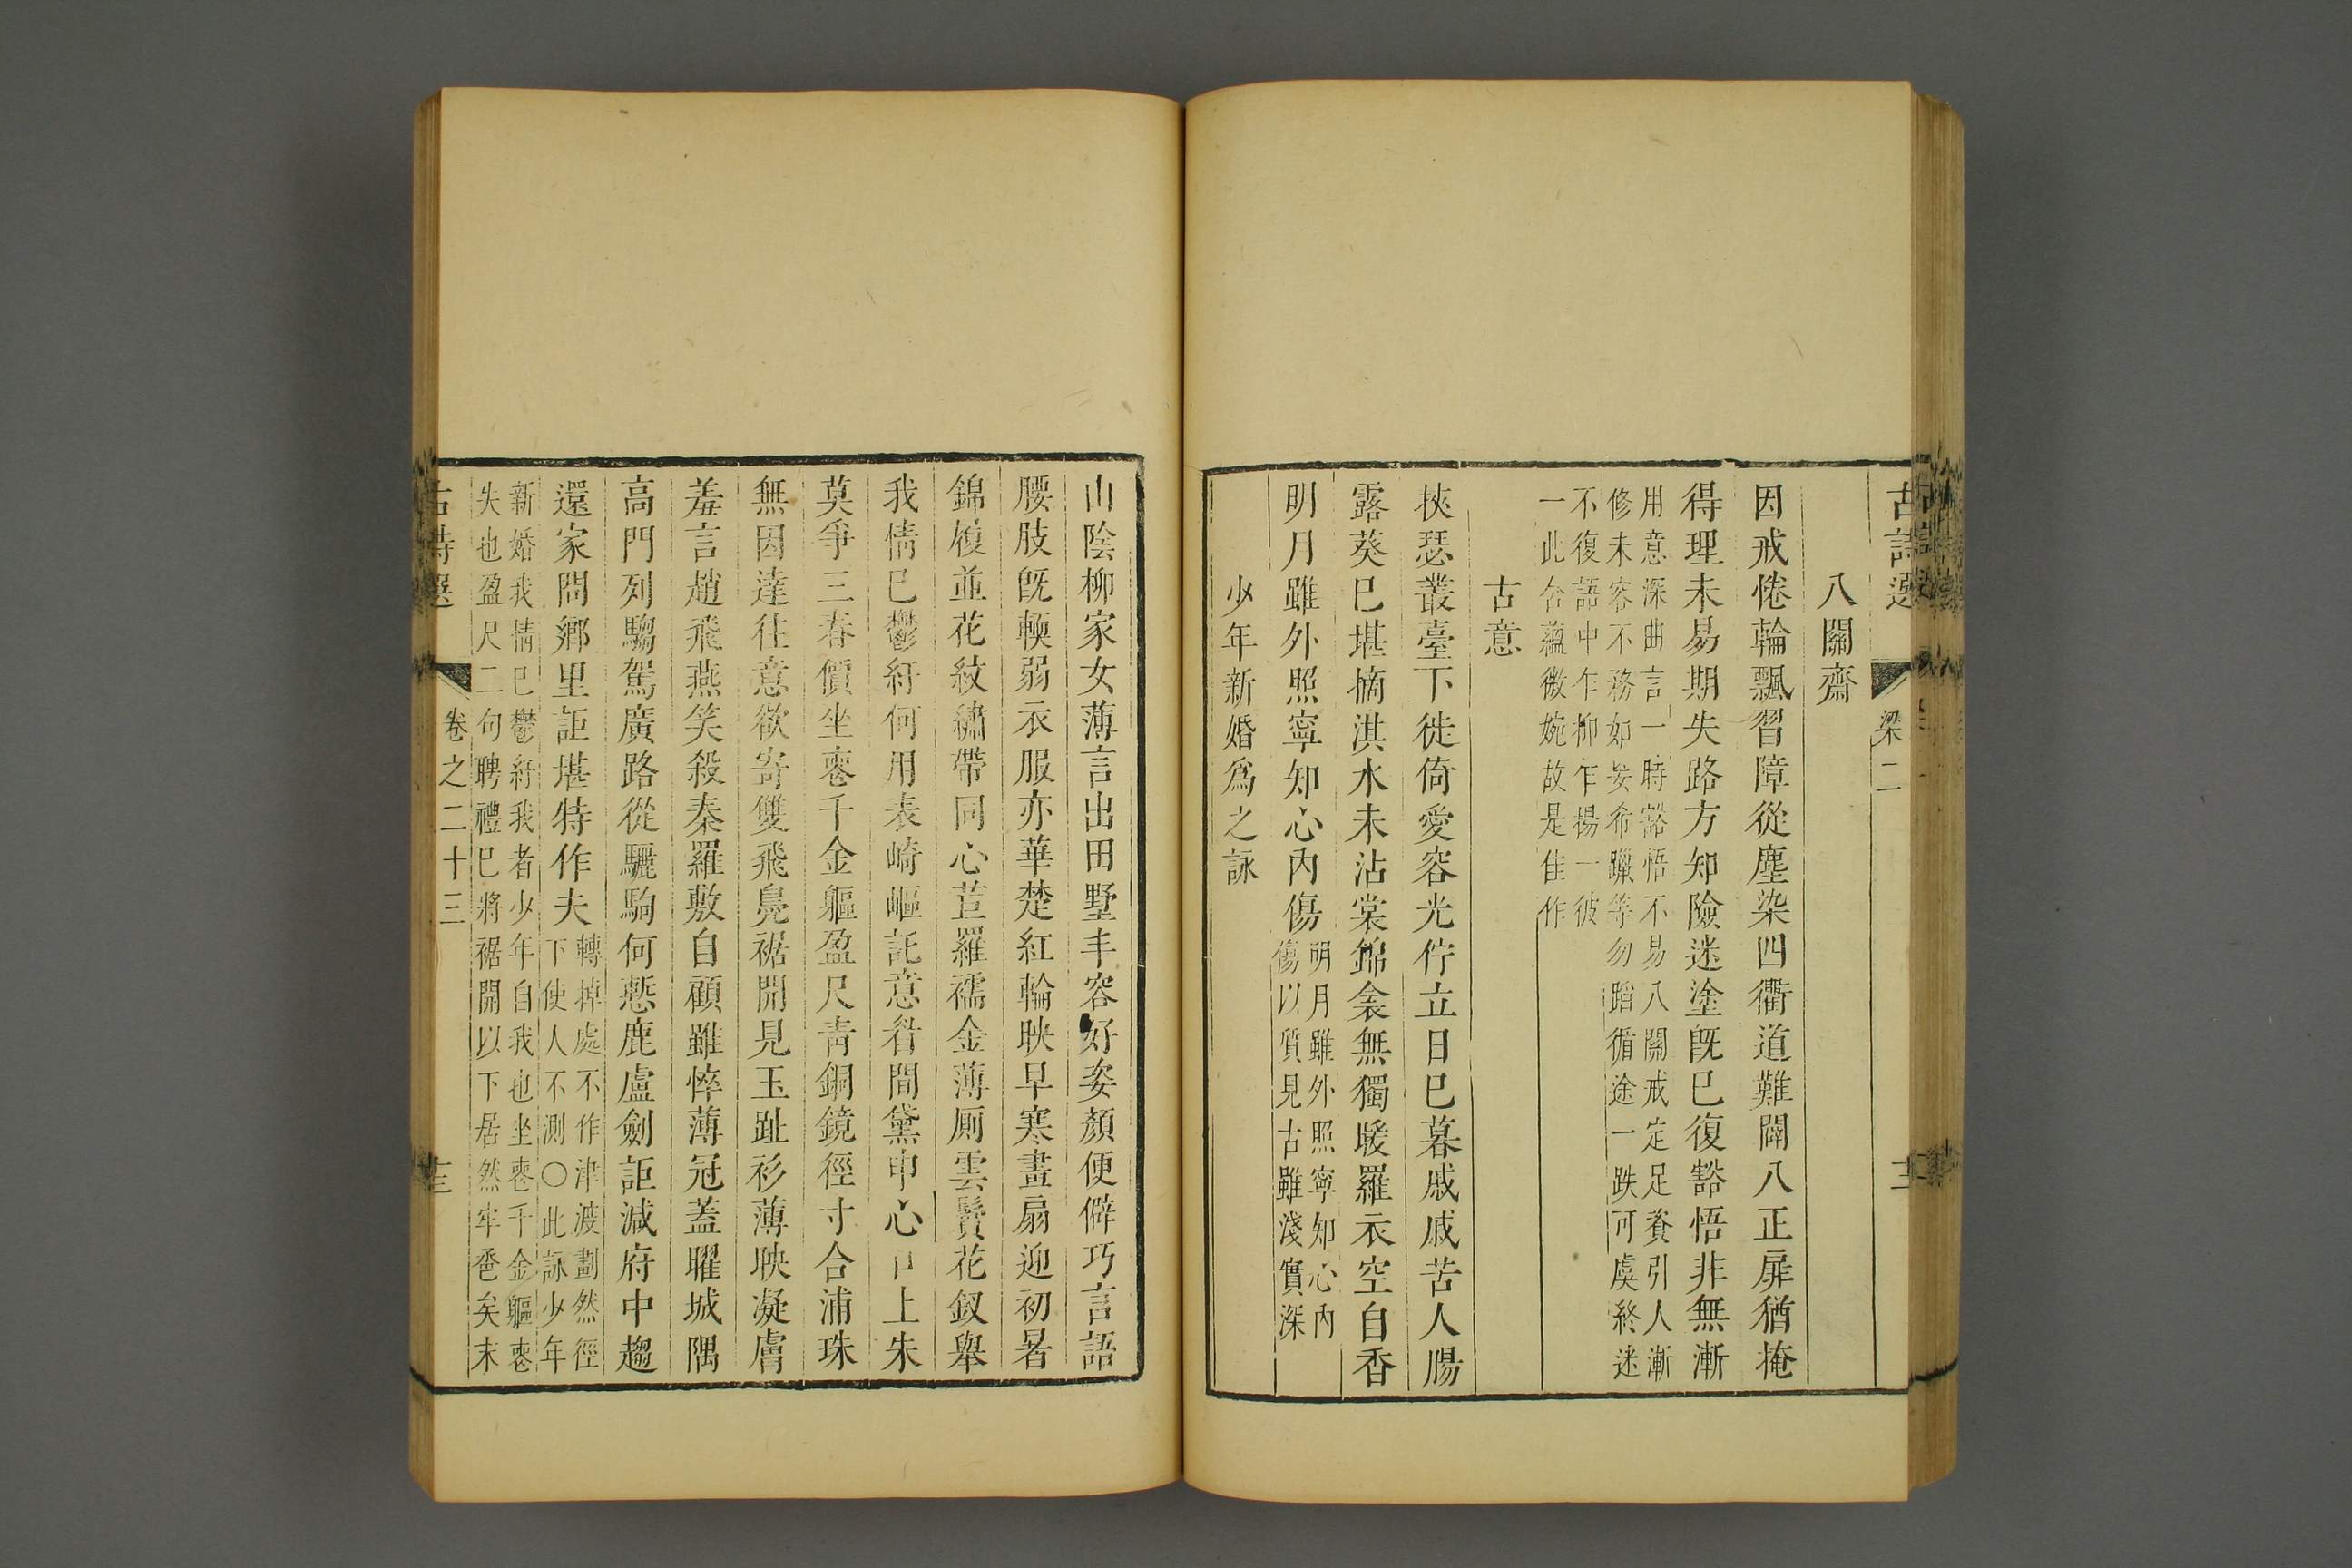 古詩選 梁二
八關齋
因戒倦輪飄習障從塵染四衢道難闢八正扉猶掩
得理未易期失路方知險迷塗旣已復豁悟非無漸
用意深曲言一時豁悟不易八關戒定足資引人漸
修未容不務如妄希躐等勿蹈循途一跌可虞終迷
不復語中乍抑乍揚一彼
一此含蘊微婉故是佳作
古意
挾瑟叢臺下徙倚愛容光佇立日已暮戚戚苦人腸
露葵已堪摘淇水未沾裳錦衾無獨暖羅衣空自香
明月雖外照寧知心內傷
明月雖外照寧知心內
傷以質見古雖淺實深
少年新婚爲之詠
山陰柳家女薄言出田墅丰容好姿顏便僻巧言語
腰肢旣輭弱衣服亦華楚紅輪映早寒畫扇迎初暑
錦履並花紋繡帶同心苣羅襦金薄厠雲鬢花釵舉
我情已鬱紆何用表崎嶇託意眷間黛申心口上朱
莫爭三春價坐喪千金軀盈尺靑銅鏡徑寸合浦珠
無因達往意欲寄雙飛鳧裾開見玉趾衫薄映凝膚
羞言趙飛燕笑殺秦羅敷自顧雖悴薄冠蓋曜城隅
高門列騶駕廣路從驪駒何慙鹿盧劍詎減府中趨
還家問鄉里詎堪特作夫
轉掉處不作津渡劃然徑
下使人不測○此詠少年
新婚我情已鬱紆我者少年自我也坐喪千金軀喪
失也盈尺二句聘禮已將裾開以下居然牢巹矣末
古詩選 卷之二十三 十三